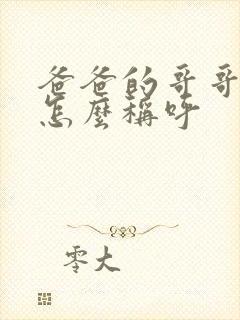 爸爸的哥哥
怎麼稱呼
零大